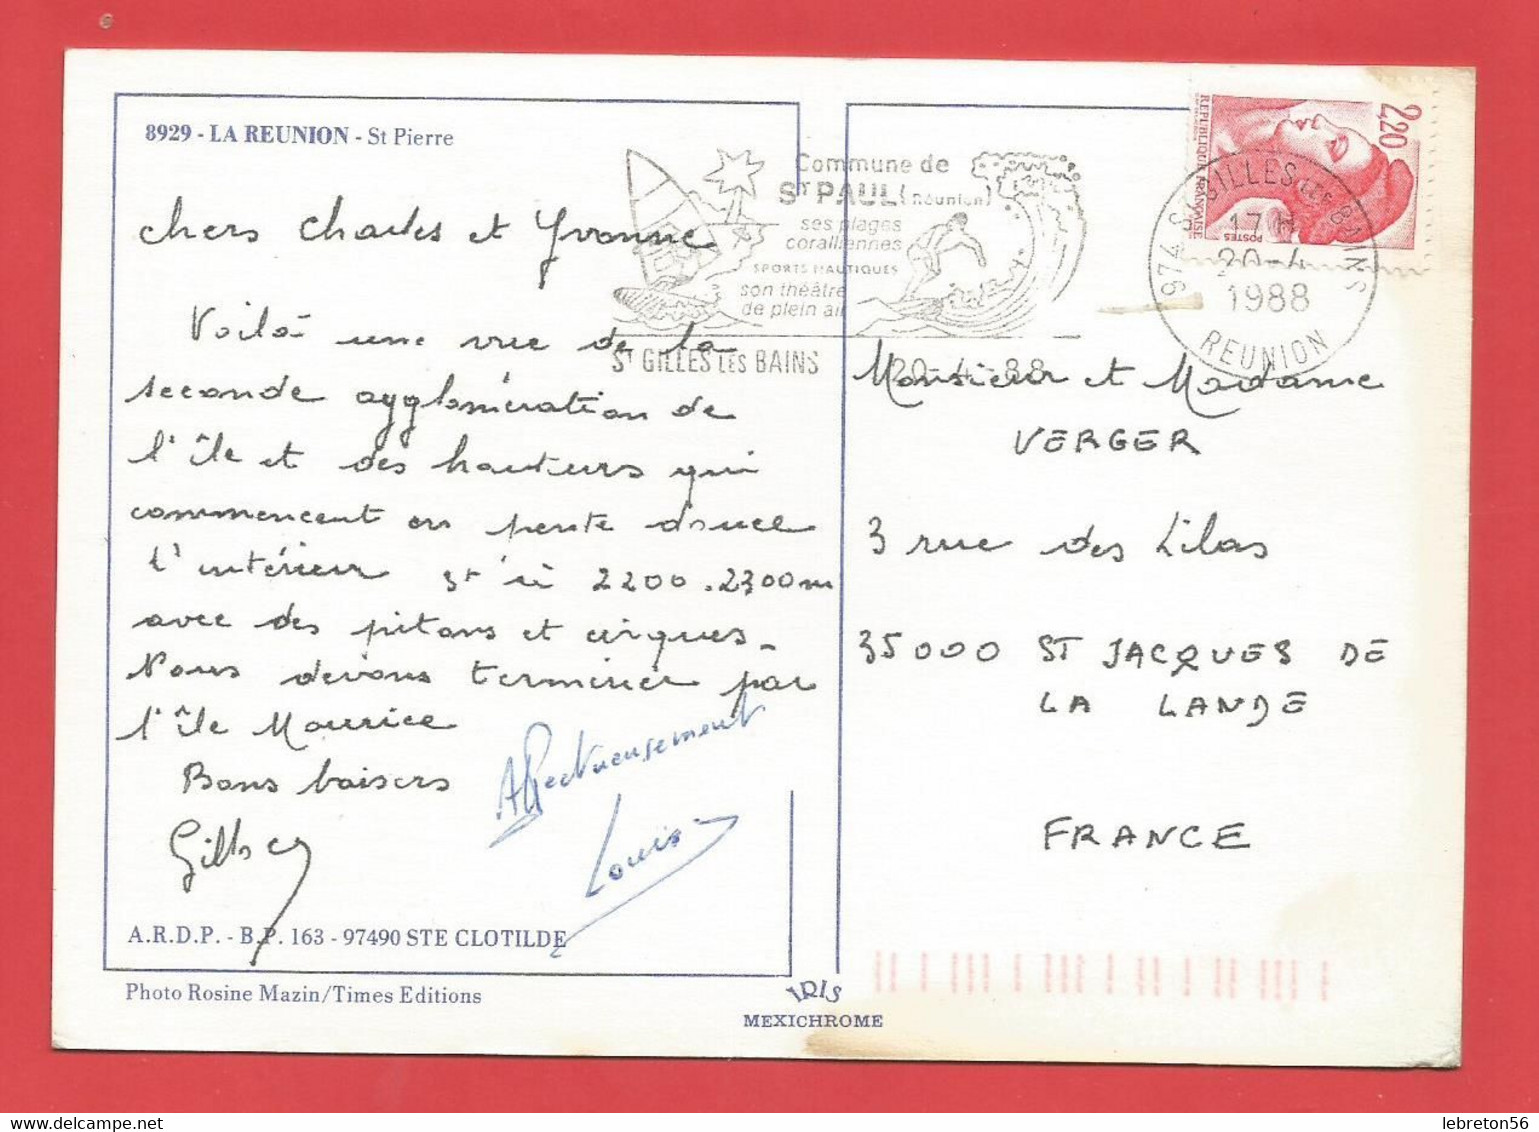 8929 - LA REUNION - St Pierre
Chers Charles et Yvonne
Voilà une vue de la
seconde agglomération de
l'île et des hauteurs qui
commencent en pente douce
l'intérieur 2200.2300m
avec des pitons et cirques_
Nous devons terminer par
l'île Maurice
Bons baisers
Affectueusement
Louis
A.R.D.P. - B.P. 163 - 97490 STE CLOTILDE
Photo Rosine Mazin/Times Editions
IRIS
MEXICHROME
Commune de
ST PAUL (Réunion)
ses plages
coralliennes
SPORTS NAUTIQUES
son théâtre
de plein air
ST GILLES LES BAINS
20-4-88
2,20
REPUBLIQUE FRANÇAISE
POSTES
974 ST GILLES LES BAINS
17 H
20-4
1988
REUNION
Monsieur et Madame
VERGER
3 rue des Lilas
35000 ST JACQUES DE
LA LANDE
FRANCE
lebreton56